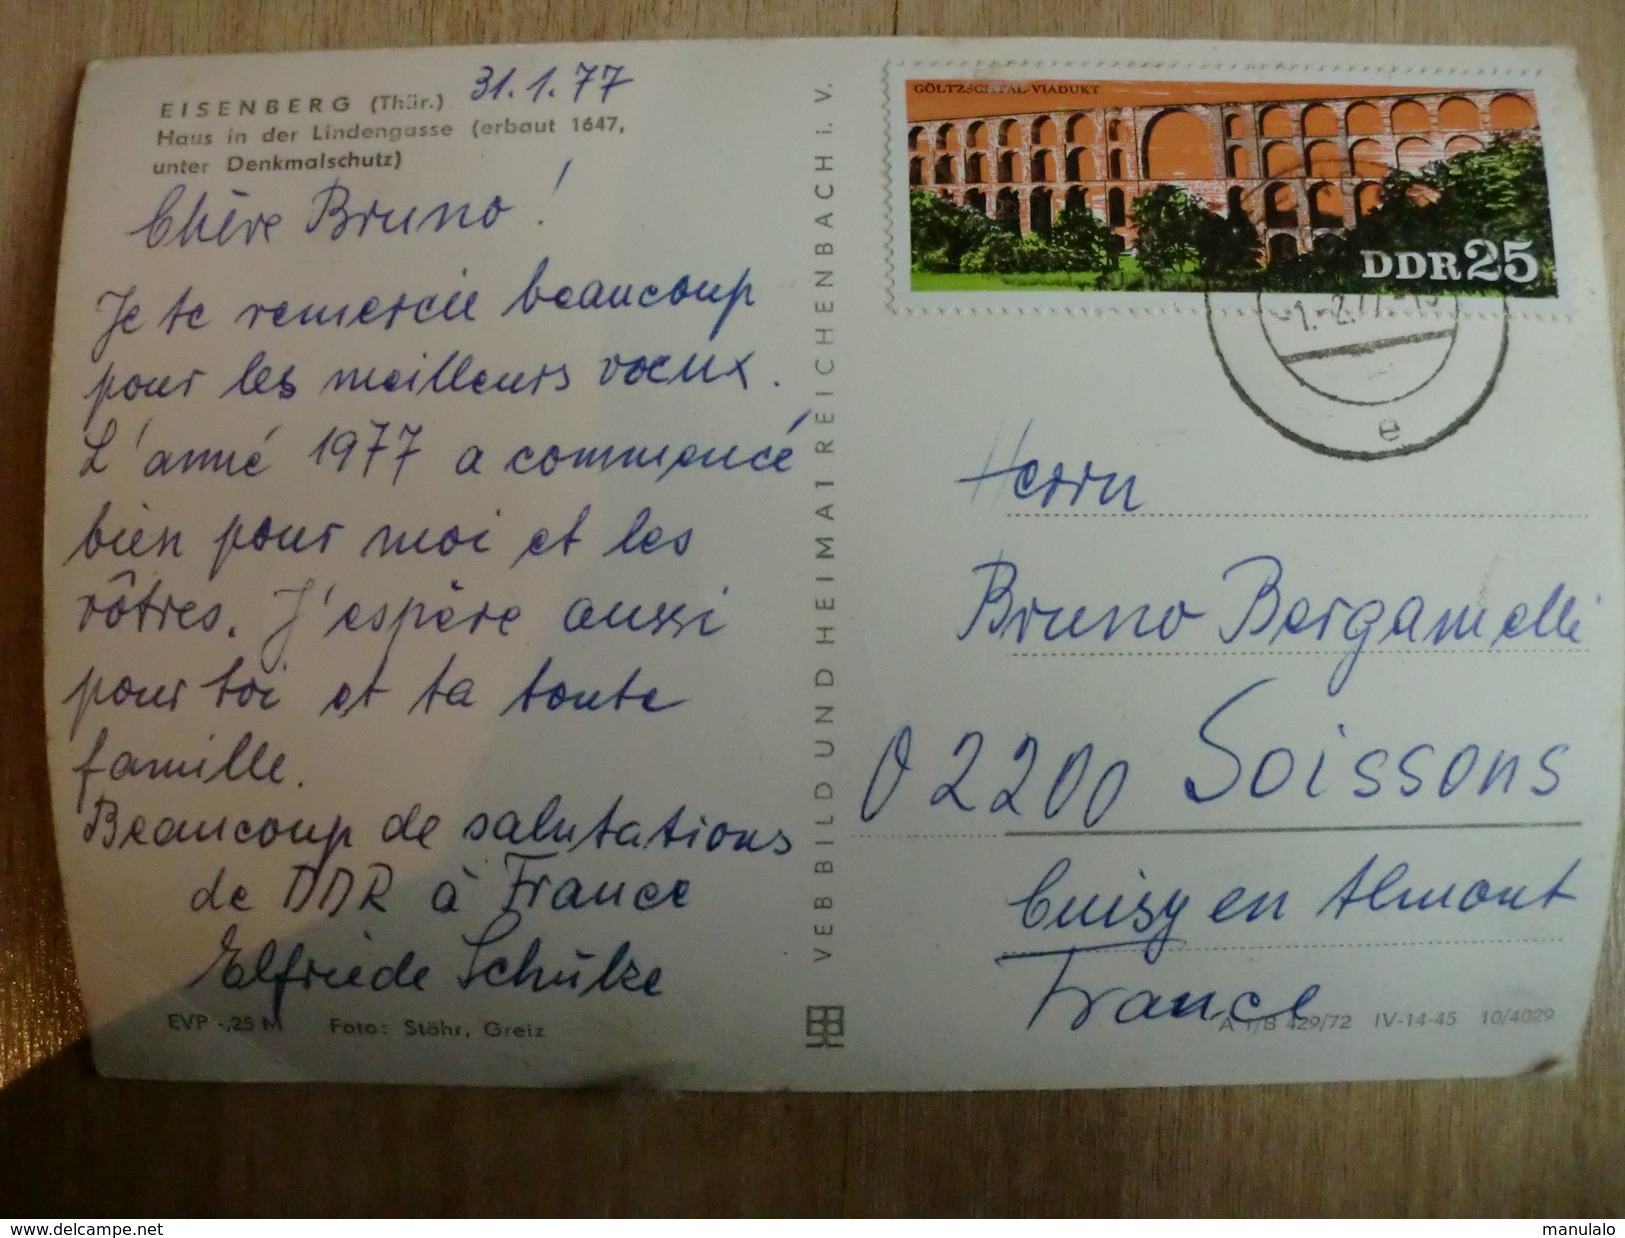 EISENBERG (Thür.) 31.1.77
Haus in der Lindengasse (erbaut 1647,
unter Denkmalschutz)
Chère Bruno!
Je te remercie beaucoup
pour les meilleurs voeux.
L'anné 1977 a commencé
bien pour moi et les
vôtres. J'espère aussi
pour toi et ta toute
famille.
Beaucoup de salutations
de DDR à France
Elfriede Schülke
EVP -,25 M Foto: Stöhr, Greiz
VEB BILD UND HEIMAT REICHENBACH i. V.
GÖLTZSCHTAL-VIADUKT
DDR 25
e
Herrn
Bruno Bergamelli
02200 Soissons
Cuisy en Almont
France
A 1/B 429/72 IV-14-45 10/4029
www.delcampe.net
manulalo